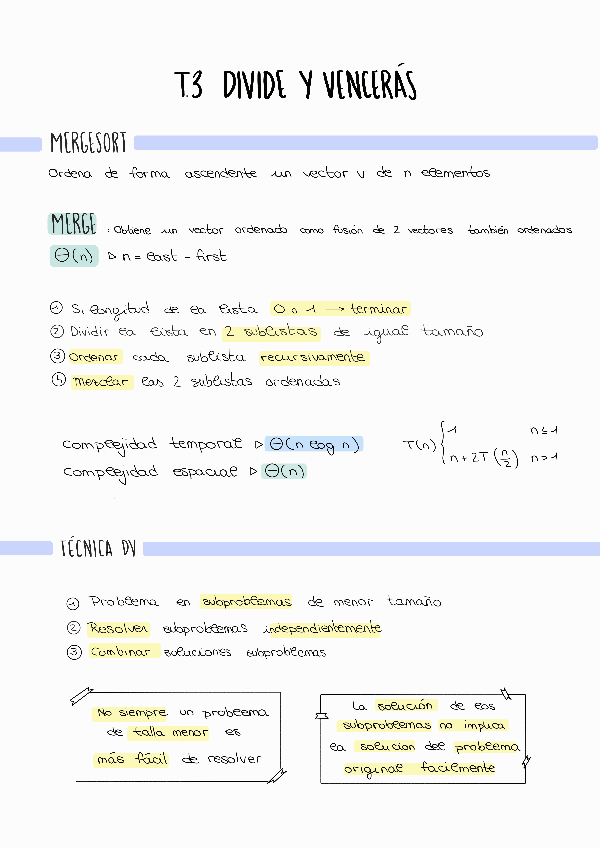 T.3 DIVIDE Y VENCERÁS
MERGESORT
Ordena de forma ascendente un vector v de n elementos
MERGE : Obtiene un vector ordenado como fusión de 2 vectores también ordenados
Θ(n) ▷ n = last - first
① Si longitud de la lista 0 o 1 → terminar
② Dividir la lista en 2 sublistas de igual tamaño
③ Ordenar cada sublista recursivamente
④ Mezclar las 2 sublistas ordenadas
complejidad temporal ▷ Θ(n log n)
complejidad espacial ▷ Θ(n)
T(n) { 1 n ≤ 1
n + 2T (n/2) n > 1
TÉCNICA DV
① Problema en subproblemas de menor tamaño
② Resolver subproblemas independientemente
③ Combinar soluciones subproblemas
No siempre un problema
de talla menor es
más fácil de resolver
La solución de los
subproblemas no implica
la solución del problema
original facilmente